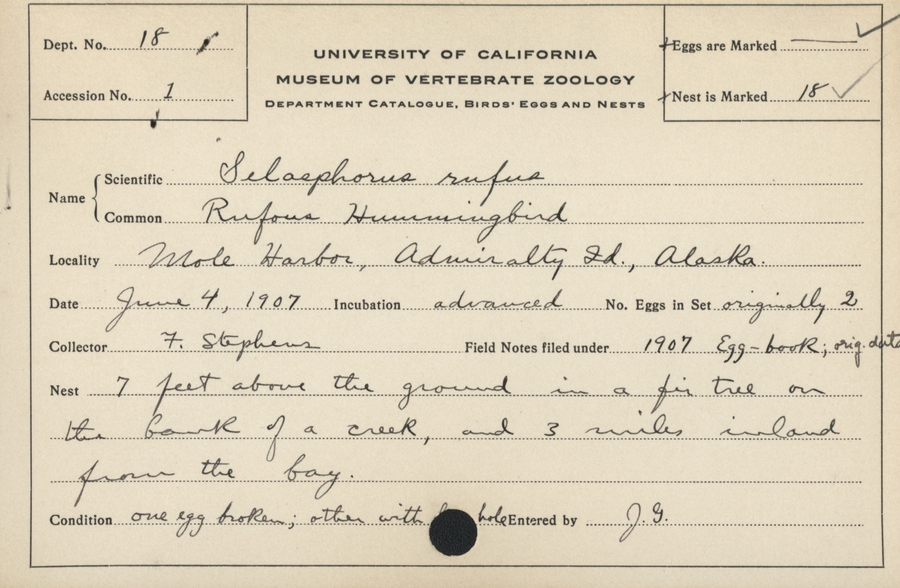 Dept. No. 18
Accession No. 1
UNIVERSITY OF CALIFORNIA
MUSEUM OF VERTEBRATE ZOOLOGY
DEPARTMENT CATALOGUE, BIRDS' EGGS AND NESTS
Eggs are Marked
Nest is Marked 18 ✓
Name { Scientific Selasphorus rufus
Common Rufous Hummingbird
Locality Mole Harbor, Admiralty Id., Alaska.
Date June 4, 1907 Incubation advanced No. Eggs in Set originally 2
Collector F. Stephens Field Notes filed under 1907 Egg-book; orig. data
Nest 7 feet above the ground in a fir tree on
the bank of a creek, and 3 miles inland
from the bay.
Condition one egg broken; other with hole Entered by J. G.